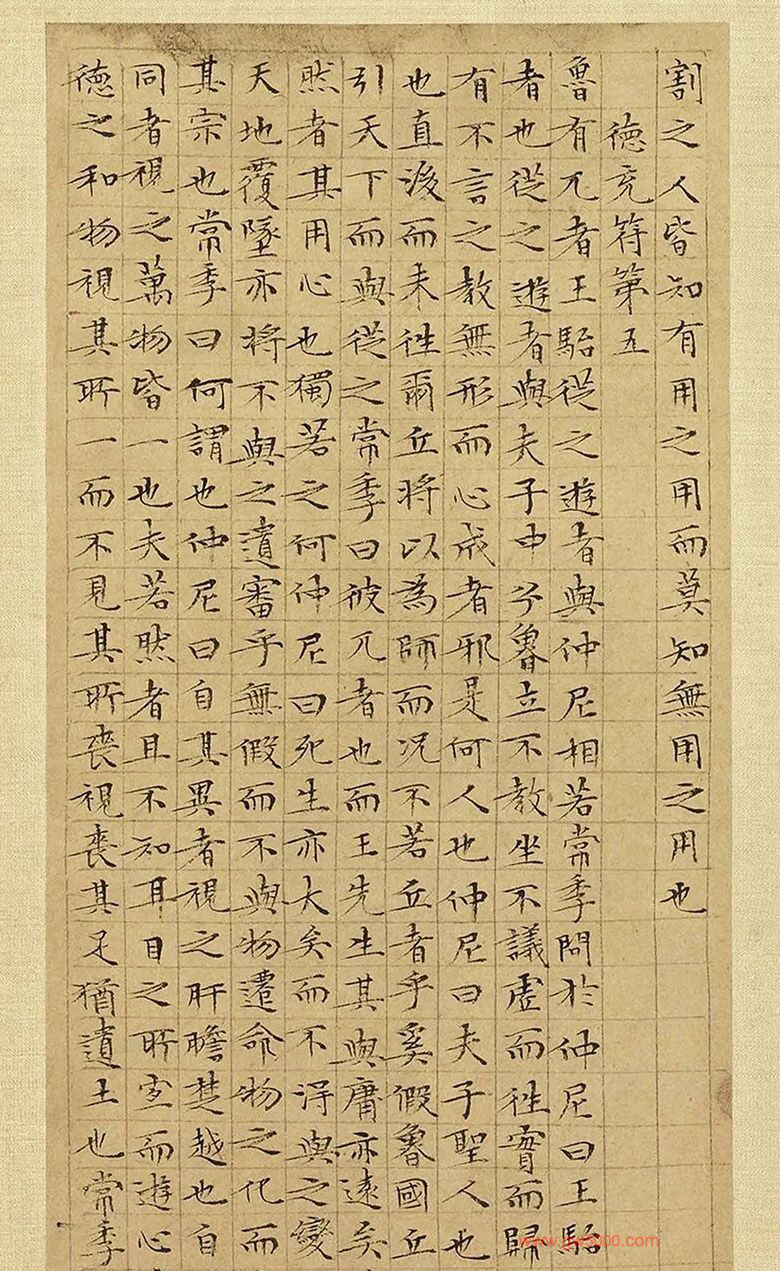 割之人皆知有用之用而莫知無用之用也
德充符第五
魯有兀者王駘從之遊者與仲尼相若常季問於仲尼曰王駘
者也從之遊者與夫子中分魯立不教坐不議虛而往實而歸
有不言之教無形而心成者邪是何人也仲尼曰夫子聖人也
也直後而未往爾丘將以為師而況不若丘者乎奚假魯國丘
引天下而與從之常季曰彼兀者也而王先生其與庸亦遠矣
然者其用心也獨若之何仲尼曰死生亦大矣而不得與之變
天地覆墜亦將不與之遺審乎無假而不與物遷命物之化而
其宗也常季曰何謂也仲尼曰自其異者視之肝膽楚越也自
同者視之萬物皆一也夫若然者且不知耳目之所宜而遊心
德之和物視其所一而不見其所喪視喪其足猶遺土也常季